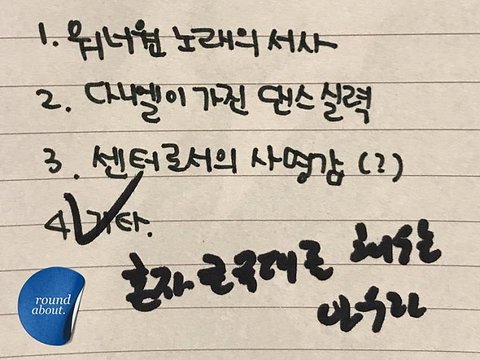 1. 워너원 노래의 서사
2. 다니엘이 가진 댄스 실력
3. 센터로서의 사명감 (?)
4. 기타.
혼자
round
about.